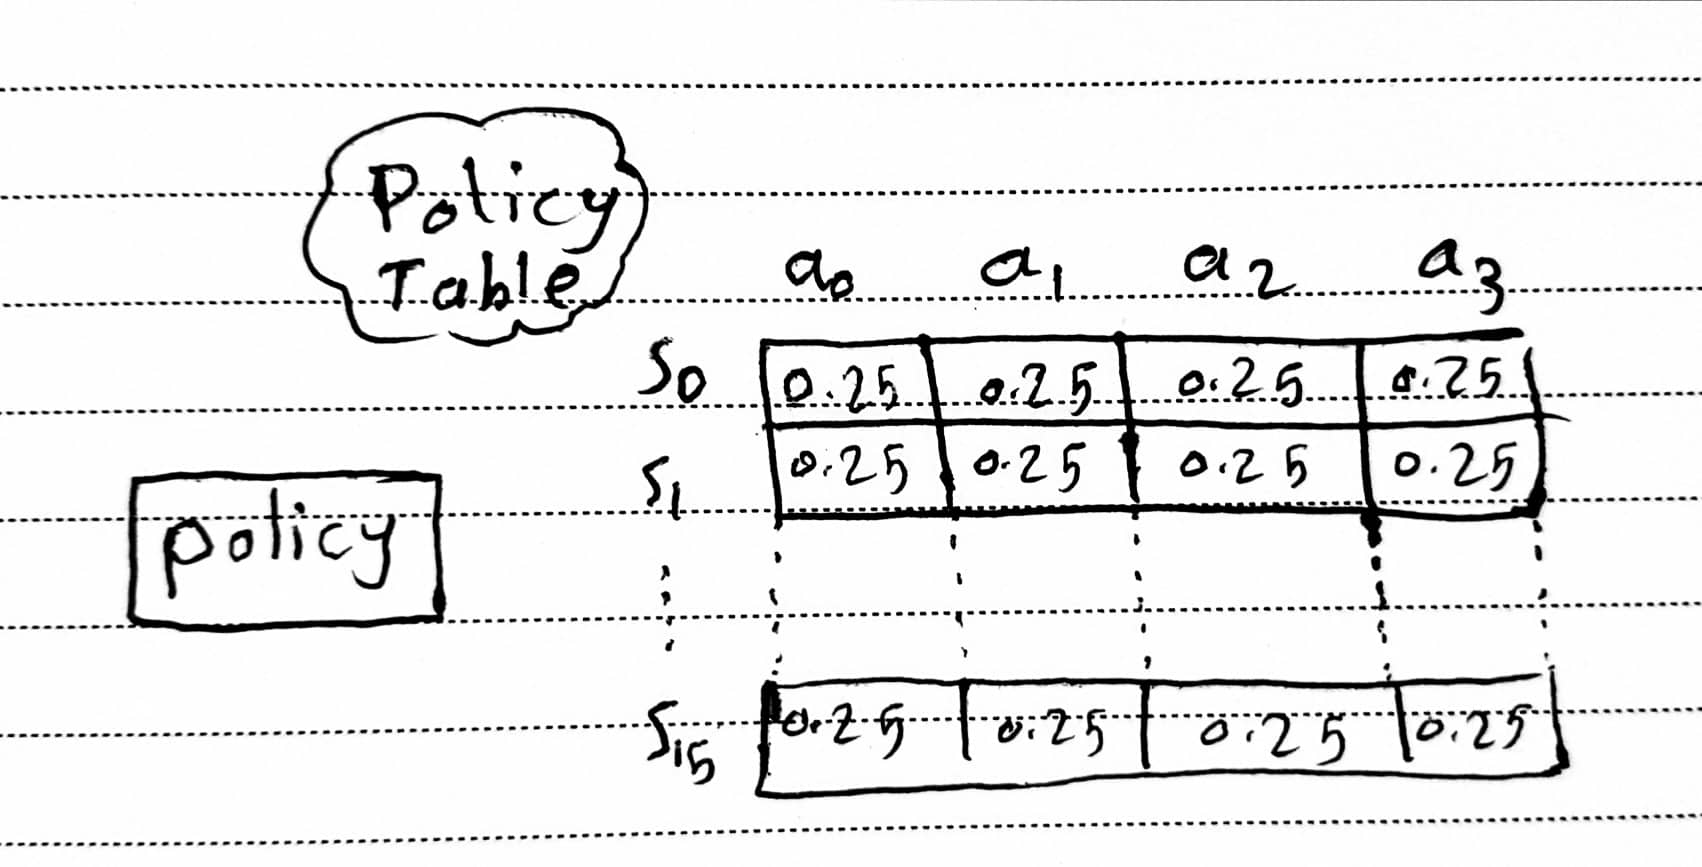 Policy
Table
a0 a1 a2 a3
S0 0.25 0.25 0.25 0.25
S1 0.25 0.25 0.25 0.25
policy
S15 0.25 0.25 0.25 0.25